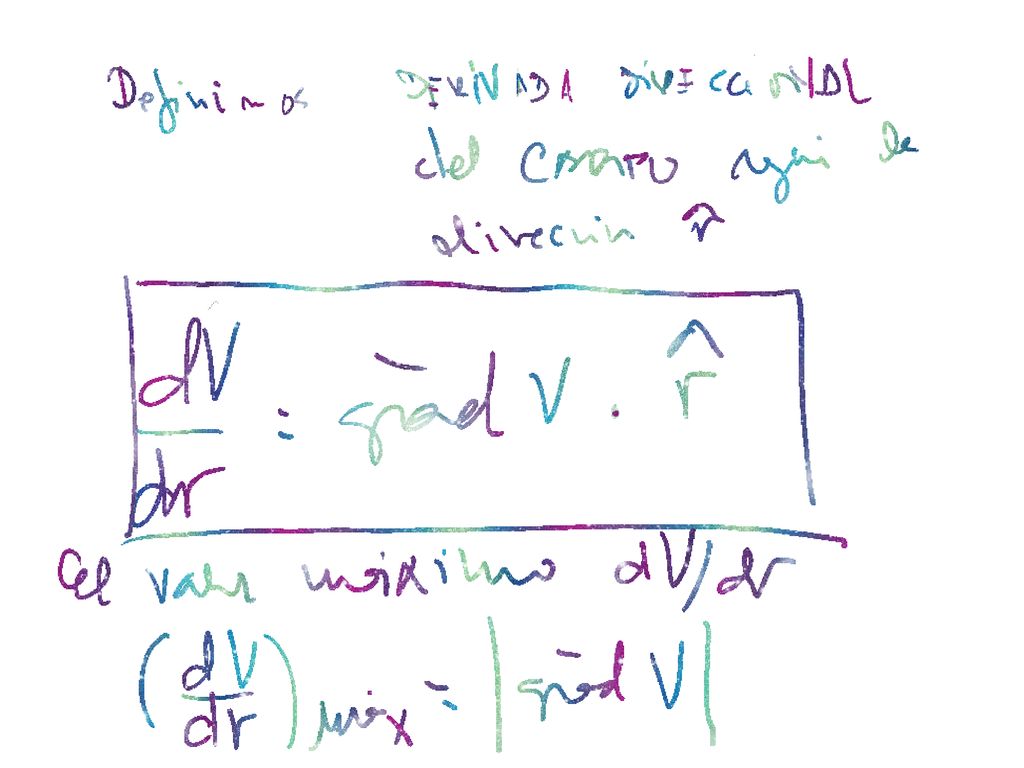 Definimos DERIVADA DIRECCIONAL
del CAMPO según la
dirección r̂
dV/dr = grad V · r̂
El valor máximo dV/dr
(dV/dr)máx = |grad V|